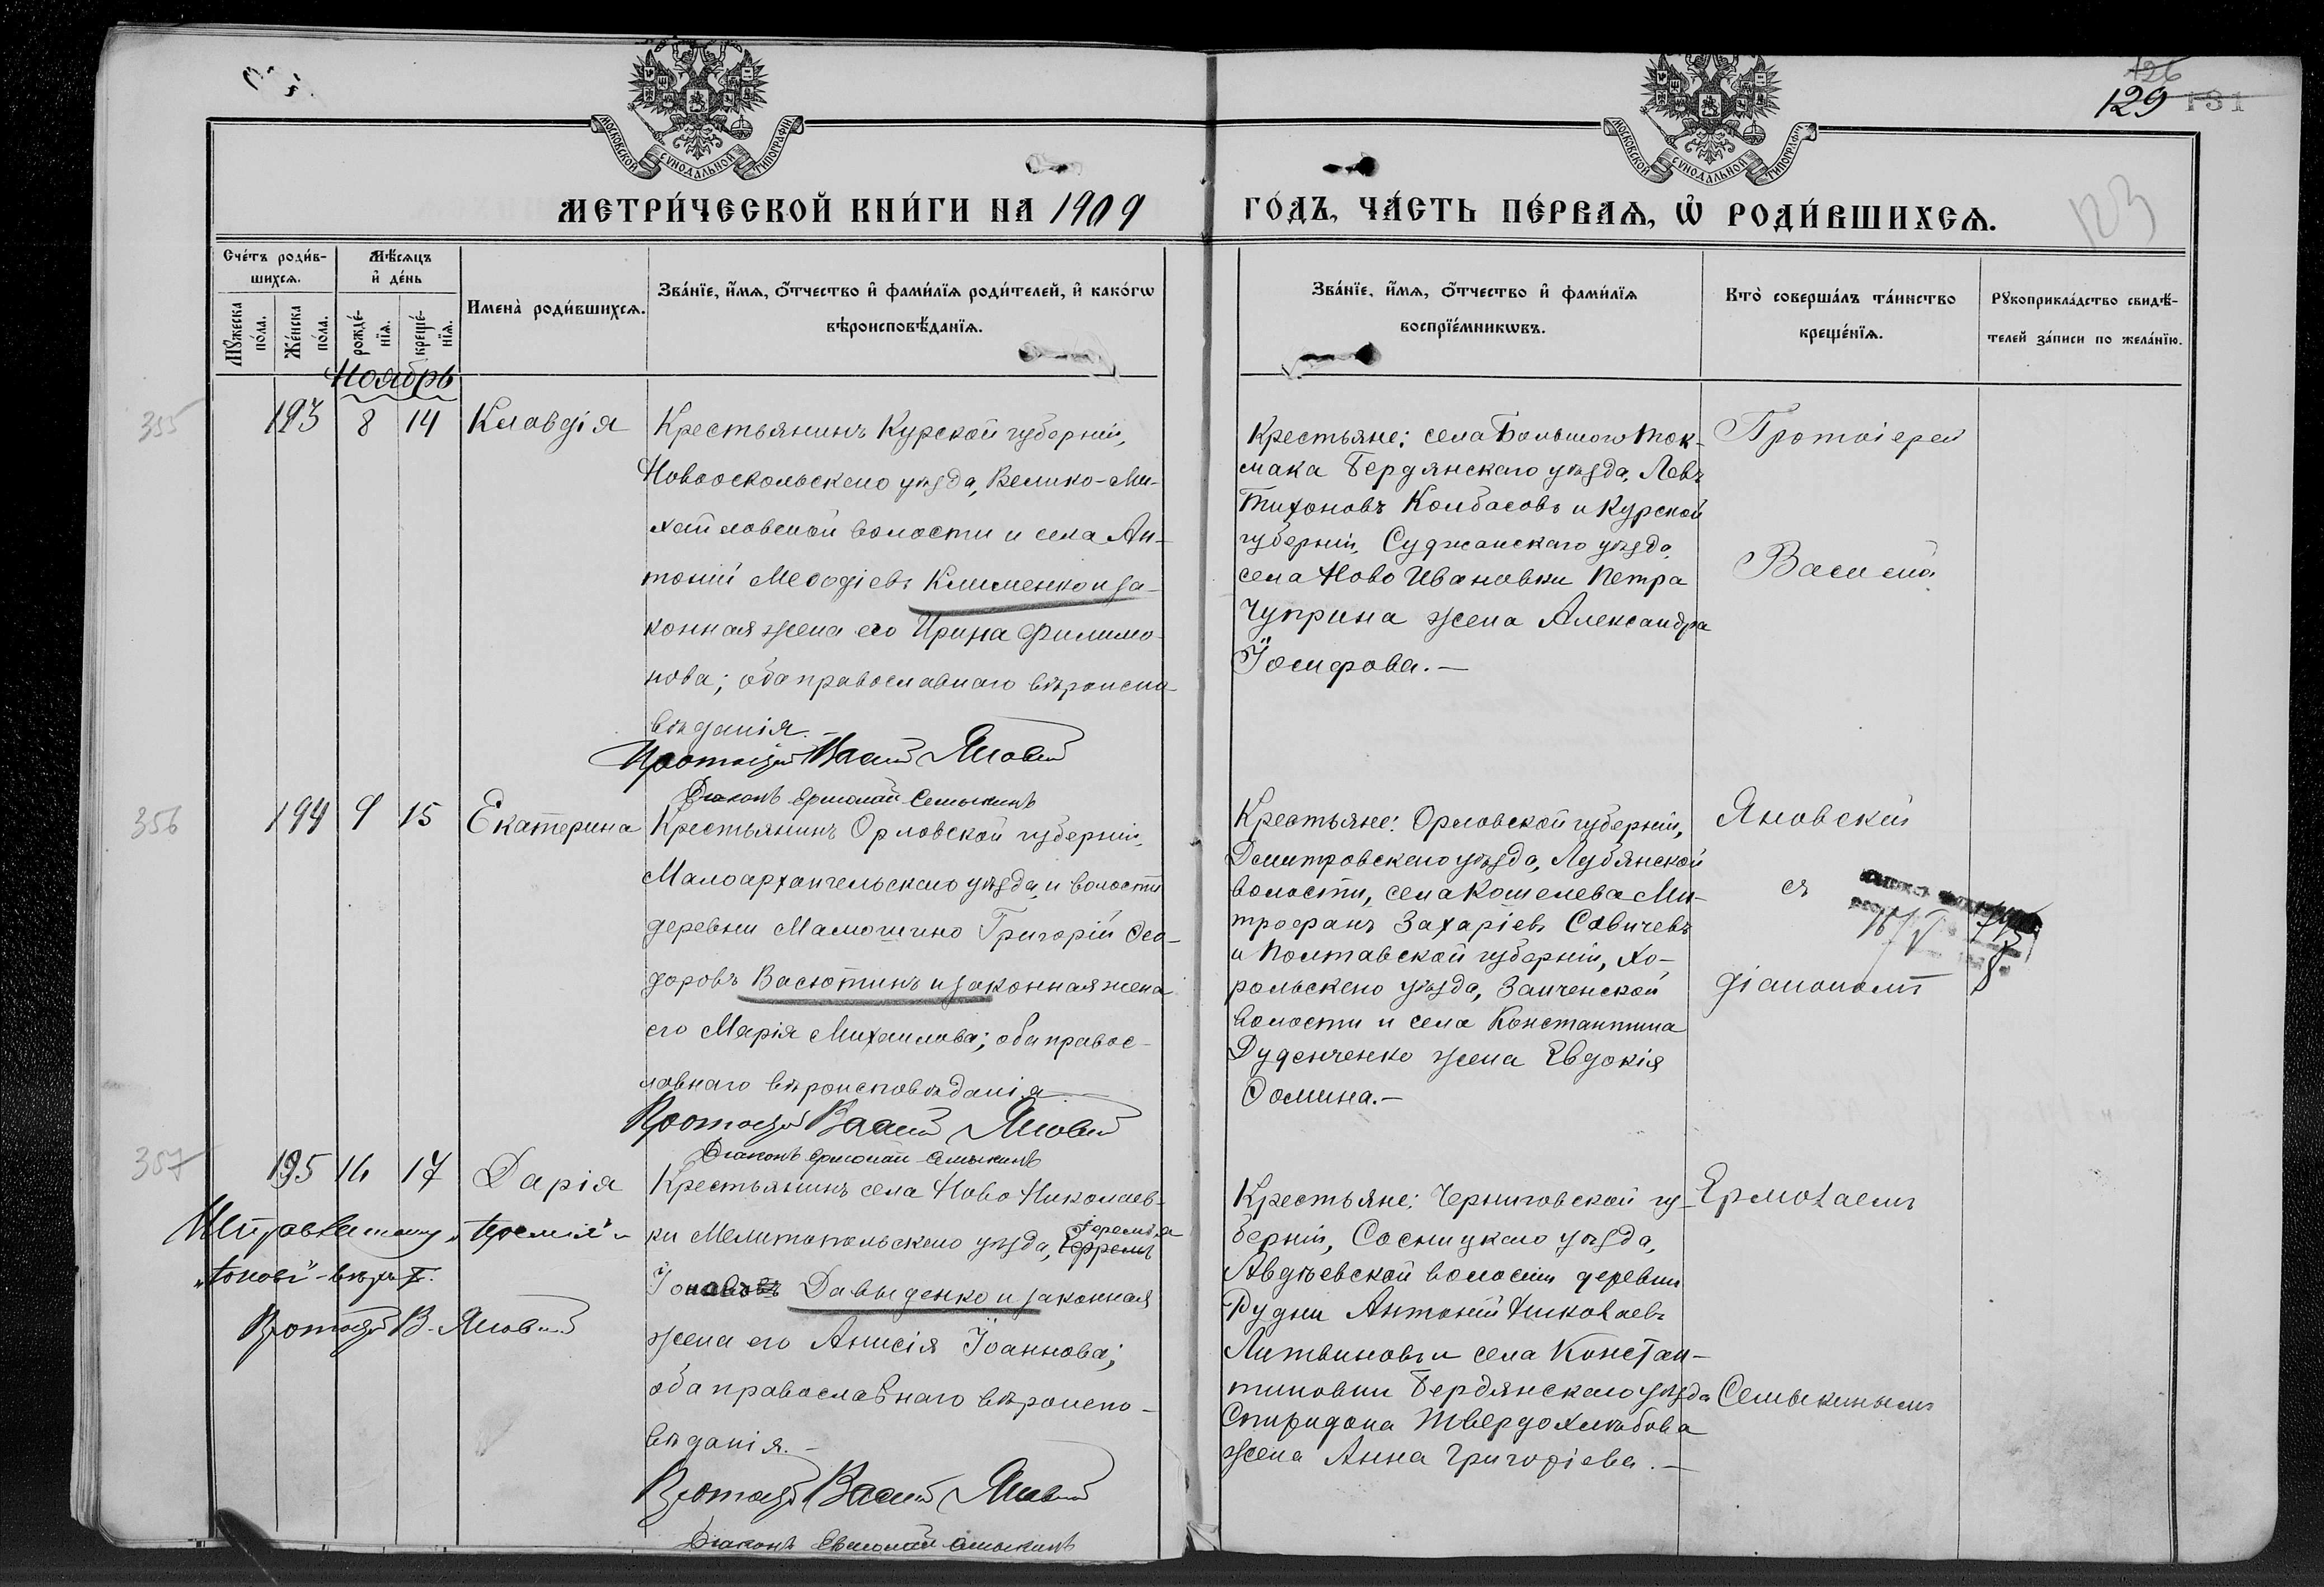 126
129 131
123
МОСКОВСКОЙ СУНОДАЛЬНОЙ ТИПОГРАФІИ
МОСКОВСКОЙ СУНОДАЛЬНОЙ ТИПОГРАФІИ
МЕТРИ́ЧЕСКОЙ КНИ́ГИ НА 1909
ГО́ДЪ, ЧА́СТЬ ПЕ́РВАѦ, Ѡ҆ РОДИ́ВШИХСѦ.
Сче́тъ роди́в-
шихсѧ.
Мꙋ́жеска по́ла.
Же́нска по́ла.
Мѣ́сѧцъ
и҆ де́нь
рожде́-
нїѧ.
креще́-
нїѧ.
Имена̀ роди́вшихсѧ.
Зва́нїе, и҆́мѧ, ѻ҆́тчество и҆ фами́лїѧ роди́телей, и҆ како́гѡ
вѣроисповѣ́данїѧ.
Зва́нїе, и҆́мѧ, ѻ҆́тчество и҆ фами́лїѧ
воспрїе́мникѡвъ.
Кто̀ соверша́лъ та́инство
креще́нїѧ.
Рꙋкоприкла́дство свидѣ́-
телей за́писи по жела́нїю.
Ноябрь
355
193 8 14 Клавдія
Крестьянинъ Курской губерніи,
Новооскольскаго уѣзда, Велико-Ми-
хайловской волости и села Ан-
тоній Меѳодіевъ Клименко и за-
конная жена его Ирина Филимо-
нова; оба православнаго вѣроиспо-
вѣданія.-
Протоіерей Василій Яновскій
Діаконъ Ермолай Семыкинъ
Крестьяне: села Большого Ток-
мака Бердянскаго уѣзда, Левъ
Тихоновъ Колбасовъ и Курской
губерніи, Суджанскаго уѣзда,
села Ново Ивановки Петра
Чуприна жена Александра
Іосифова.-
Протоіерей
Василій
356
194 9 15 Екатерина
Крестьянинъ Орловской губерніи,
Малоархангельскаго уѣзда, и волости
деревни Мамошино Григорій Ѳео-
доровъ Васютинъ и законная жена
его Марія Михаилова; оба правос-
лавнаго вѣроисповѣданія.-
Протоіерей Василій Яновскій
Діаконъ Ермолай Семыкинъ
Крестьяне: Орловской губерніи,
Дмитровскаго уѣзда, Лубянской
волости, села Кошелева Ми-
трофанъ Захаріевъ Савичевъ
и Полтавской губерніи, Хо-
рольскаго уѣзда, Заиченской
волости и села Константина
Дуденченко жена Евдокія
Ѳомина.-
Яновскій
съ
діакономъ
357
195 16 17 Дарія
Крестьянинъ села Ново Николаев-
ки Мелитопольскаго уѣзда, Іеремія
Іоновъ Давыденко и законная
жена его Анисія Іоаннова;
оба православнаго вѣроиспо-
вѣданія.-
Протоіерей Василій Яновскій
Діаконъ Ермолай Семыкинъ
Протоіерей В. Яновскій
Крестьяне: Черниговской гу-
берніи, Сосницкаго уѣзда,
Авдѣевской волости деревни
Рудни Антоній Николаевъ
Литвиновъ и села Констан-
тиновки Бердянскаго уѣзда
Спиридона Твердохлѣбова
жена Анна Григоріева.-
Ермолаемъ
Семыкинымъ